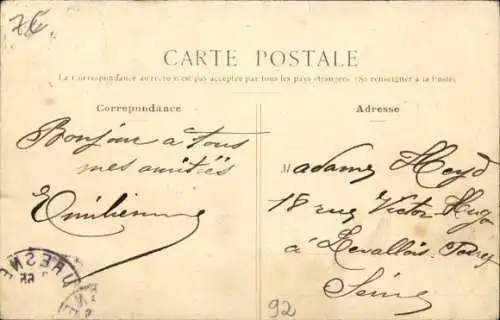 CARTE POSTALE
La Correspondance au recto n'est pas acceptée par tous les pays étrangers (Se renseigner à la Poste)
Correpondance
Adresse
Bonjour a tous
mes amitiés
Emilienne
Madame Heyd
18 rue Victor Hugo
à Levallois-Perret
Seine
92